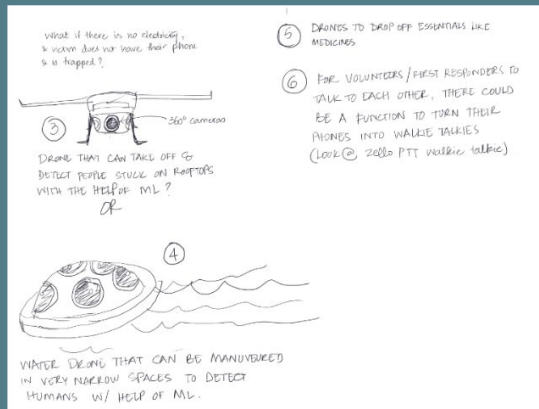 What if there is no electricity,
& victim does not have their phone
& is trapped?
3
360° cameras
DRONE THAT CAN TAKE OFF &
DETECT PEOPLE STUCK ON ROOFTOPS
WITH THE HELP OF ML?
OR
4
WATER DRONE THAT CAN BE MANUVEURED
IN VERY NARROW SPACES TO DETECT
HUMANS W/ HELP OF ML.
5 DRONES TO DROP OFF ESSENTIALS LIKE
MEDICINES
6 FOR VOLUNTEERS/FIRST RESPONDERS TO
TALK TO EACH OTHER, THERE COULD
BE A FUNCTION TO TURN THEIR
PHONES INTO WALKIE TALKIES
(LOOK @ Zello PTT walkie talkie)